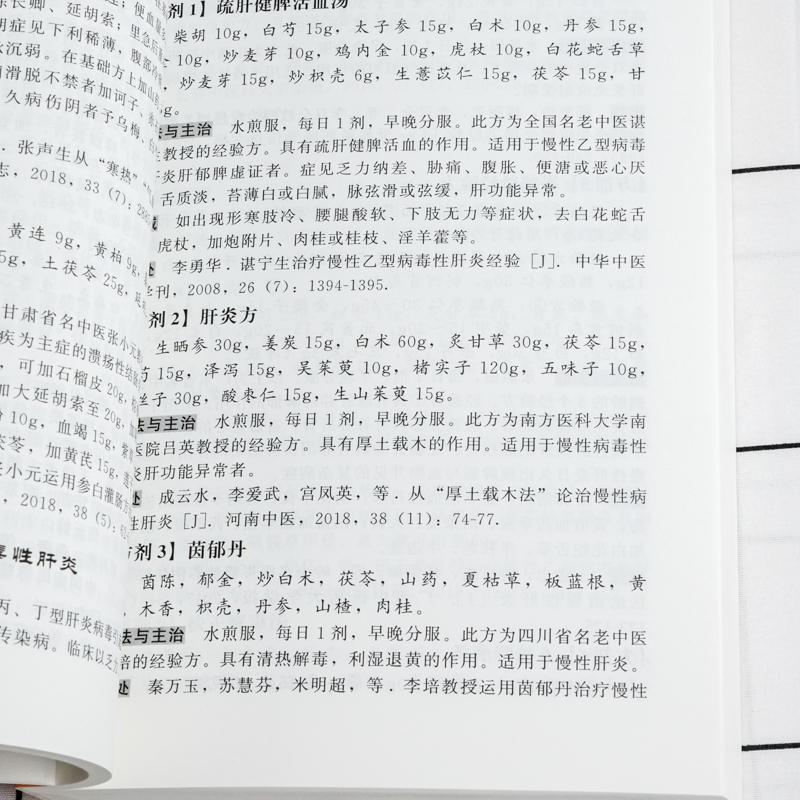 长卿、延胡索；里急后
症见下利稀薄，腹部冷
沉弱。在基础方上加山
滑脱不禁者加诃子、
久病伤阴者予乌梅、
．张声生从“寒热”
志，2018，33（7）：286
黄连 9g，黄柏 9g，
5g，土茯苓 25g，
甘肃省名中医张小元
疾为主症的溃疡性结
，可加石榴皮 20g，
加大延胡索至 20g，加
10g，血竭 15g，紫
茯苓，加黄芪 15g，
张小元运用参白灌肠方
，2018，38（5）：6
毒性肝炎
丙、丁型肝炎病毒引
传染病。临床以乏力
剂 1】疏肝健脾活血汤
柴胡 10g，白芍 15g，太子参 15g，白术 10g，丹参 15g，
10g，炒麦芽 10g，鸡内金 10g，虎杖 10g，白花蛇舌草
，炒麦芽 15g，炒枳壳 6g，生薏苡仁 15g，茯苓 15g，甘
g。
法与主治 水煎服，每日 1 剂，早晚分服。此方为全国名老中医谌
生教授的经验方。具有疏肝健脾活血的作用。适用于慢性乙型病毒
肝炎肝郁脾虚证者。症见乏力纳差、胁痛、腹胀、便溏或恶心厌
舌质淡，苔薄白或白腻，脉弦滑或弦缓，肝功能异常。
如出现形寒肢冷、腰腿酸软、下肢无力等症状，去白花蛇舌
虎杖，加炮附片、肉桂或桂枝、淫羊藿等。
处 李勇华．谌宁生治疗慢性乙型病毒性肝炎经验［J］．中华中医
学刊，2008，26（7）：1394-1395.
剂 2】肝炎方
生晒参 30g，姜炭 15g，白术 60g，炙甘草 30g，茯苓 15g，
芍 15g，泽泻 15g，吴茱萸 10g，楮实子 120g，五味子 10g，
丝子 30g，酸枣仁 15g，生山茱萸 15g。
法与主治 水煎服，每日 1 剂，早晚分服。此方为南方医科大学南
医院吕英教授的经验方。具有厚土载木的作用。适用于慢性病毒性
炎肝功能异常者。
处 成云水，李爱武，宫风英，等．从“厚土载木法”论治慢性病
性肝炎［J］．河南中医，2018，38（11）：74-77.
方剂 3】茵郁丹
茵陈，郁金，炒白术，茯苓，山药，夏枯草，板蓝根，黄
，木香，枳壳，丹参，山楂，肉桂。
法与主治 水煎服，每日 1 剂，早晚分服。此方为四川省名老中医
培的经验方。具有清热解毒，利湿退黄的作用。适用于慢性肝炎。
处 秦万玉，苏慧芬，米明超，等．李培教授运用茵郁丹治疗慢性